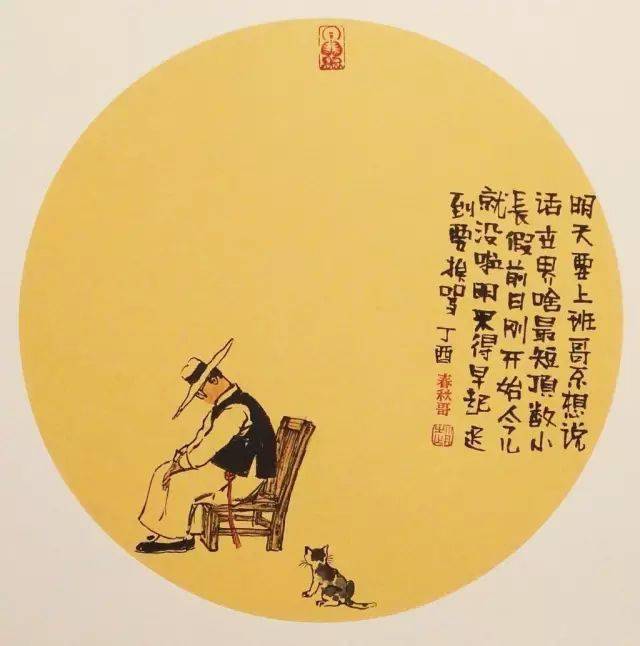 明天要上班哥不想说
话世界啥最短頂数小
長假前日刚开始今儿
就没啦明天得早起迟
到要挨骂 丁酉 春秋哥